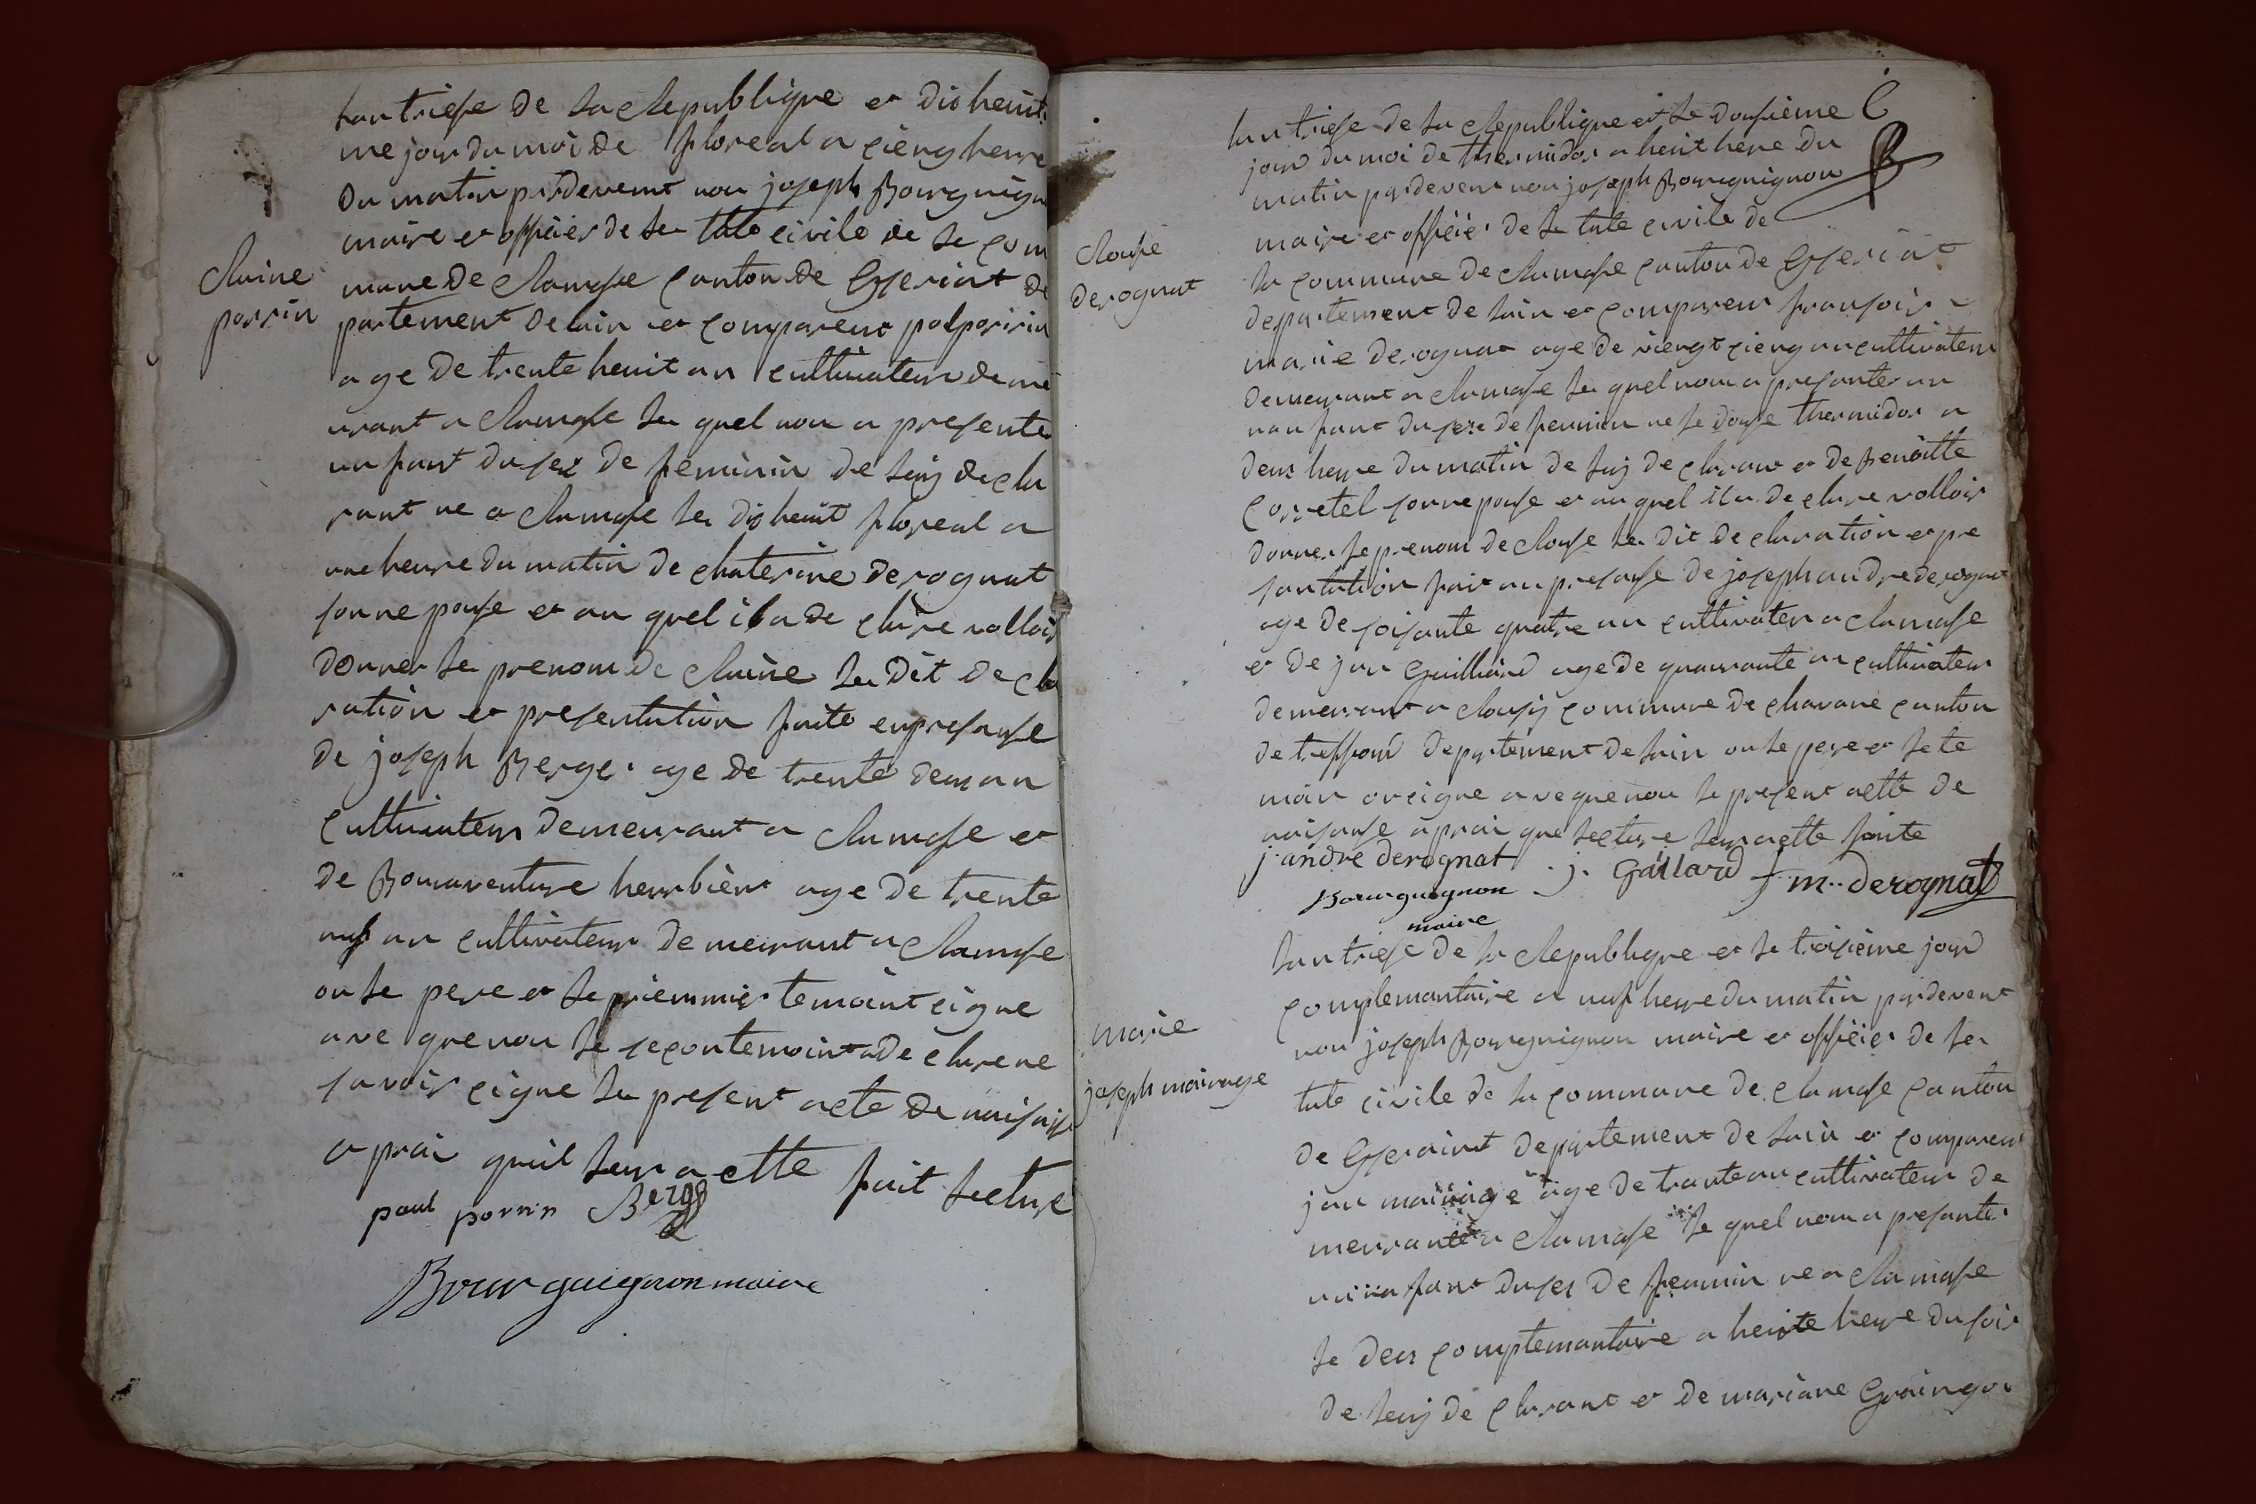 Claire
porrin
lan triese de la Republique et dis heuit
me jour du moi de floreal a cieng heure
du matin pardevent nou joseph Bourguign
maire et officier de le tate civile de la com
mune de Clamose canton de Ceyseriat de
partement de lain et comparent pol porrin
age de trente heuit an cultivateur deme
urant a Clamose le quel nou a presente
un fant du sex de feminin de luy decla
rant ne a Clamose le dis heuit floreal a
une heure du matin de chaterine derognat
sonne pouse et au quel il a de clare valloir
donner le prenom de Claire le dit de cla
ration et presentation faite en presanse
de joseph Berger age de trente deus an
cultivateur demeurant a Clamose et
de Bonaventure herbient age de trente
nuf an cultivateur demeurant a Clamose
ou le pere et le priemmier temoint cigne
ave que nou le secon temoint a de clare ne
savoir cigne le present acte de naisanse
aprai quil leur a ette fait lecture
paul porrin Berger
Bourguignon maire
Clouse
derognat
lan triese de la Republique et le dousieme
jour du moi de thermidor a heuit heure du
matin pardevent nou joseph Bourguignon
maire et officier de le tate civile de
la commune de Clamose canton de Ceyseriat
departement de lain et comparent fransois
marie derognat age de viengt cieng an cultivateur
demeurant a Clamose le quel nou a presanter un
nanfant du sexe de feminin ne le douse thermidor a
deus heure du matin de luy declarant et de Benoitte
Corretel sonnepouse et au quel il a de clare valloir
donner le prenom de Clouse le dit de claration et pre
santation fait au presanse de joseph andre derognat
age de soisante quatre an cultivateur a Clamose
et de jan Guilliard age de quarante an cultivateur
demeurant a Clousy commune de chavane canton
de treffour departement de lain ou le pere et le te
moin on cigne aveque nou le present actte de
naisanse aprai que lecture leur a ette faite
j. andre derognat j. Gaillard f m.. derognat
Bourguignon
maire
marie
joseph mairage
lan triese de la Republique et le troisieme jour
complemantaire a nuf heure du matin pardevent
nou joseph Bourguignon maire et officier de le
tate civile de la commune de Clamose canton
de Ceyseraint departement de lain et comparent
jan mairage age de trante an cultivateur de
meurant a Clamose le quel nou a presanter
un nanfant du sex de feminin ne a Clamose
le deus complemantaire a heuite heure du soir
de luy de clarant et de mariane